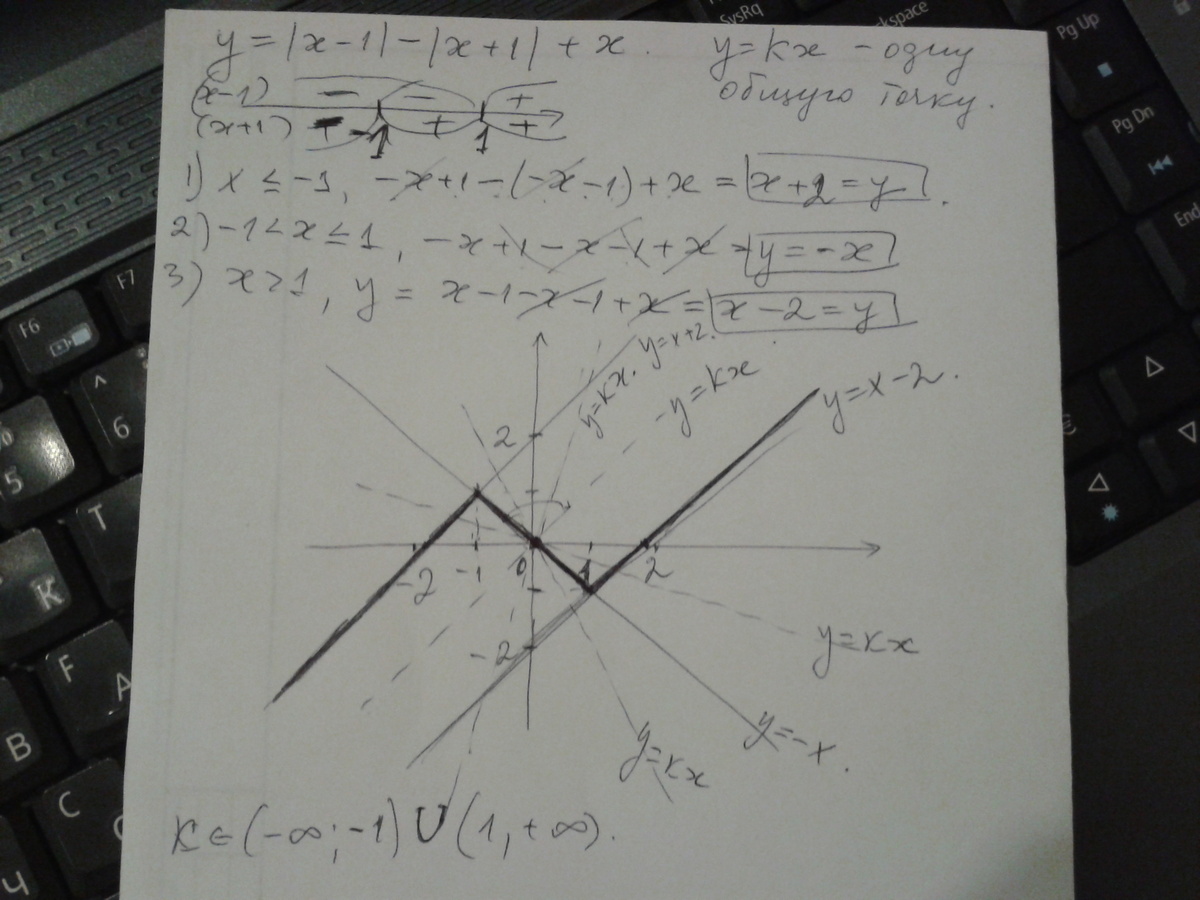 y = |x-1| - |x+1| + x. y = kx - одну
общую точку.
(x-1) - - +
(x+1) - + +
-1 1
1) x ≤ -1, -x+1-(-x-1)+x = x+2=y.
2) -1 < x ≤ 1, -x+1-x-1+x = y=-x
3) x>1, y = x-1-x-1+x = x-2=y
y=x+2.
y=kx.
y=kx
y=x-2.
2
-2 -1 0 1 2
-2
y=kx
y=-x.
y=kx
K ∈ (-∞; -1) ∪ (1, +∞).
SysRq
Backspace
Pg Up
Pg Dn
End
F7
F6
^
6
5
T
К
F
А
В
С
Ч
€